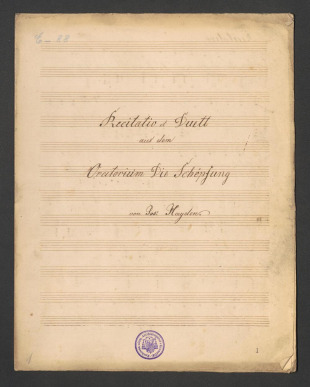 Recitativ & Duett
aus dem
Oratorium Die Schöpfung
von Jos: Hayden.
1